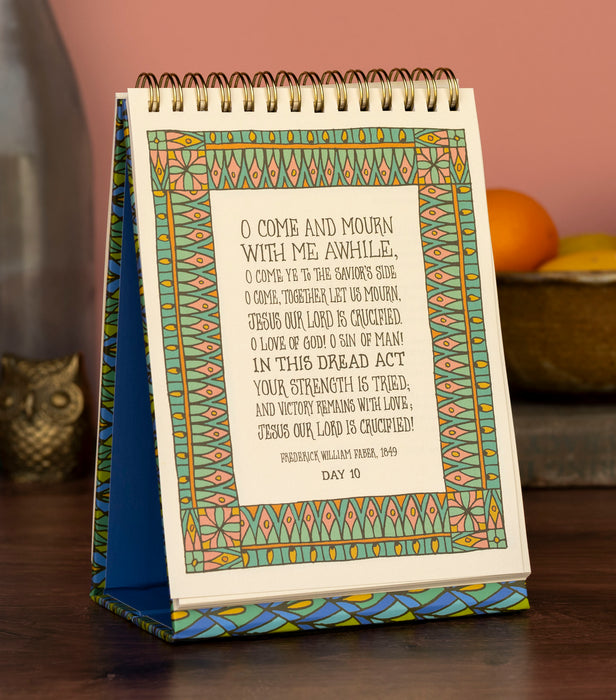 O COME AND MOURN
WITH ME AWHILE,
O COME YE TO THE SAVIOR'S SIDE
O COME, TOGETHER LET US MOURN,
JESUS OUR LORD IS CRUCIFIED.
O LOVE OF GOD! O SIN OF MAN!
IN THIS DREAD ACT
YOUR STRENGTH IS TRIED;
AND VICTORY REMAINS WITH LOVE;
JESUS OUR LORD IS CRUCIFIED!
FREDERICK WILLIAM FABER, 1849
DAY 10